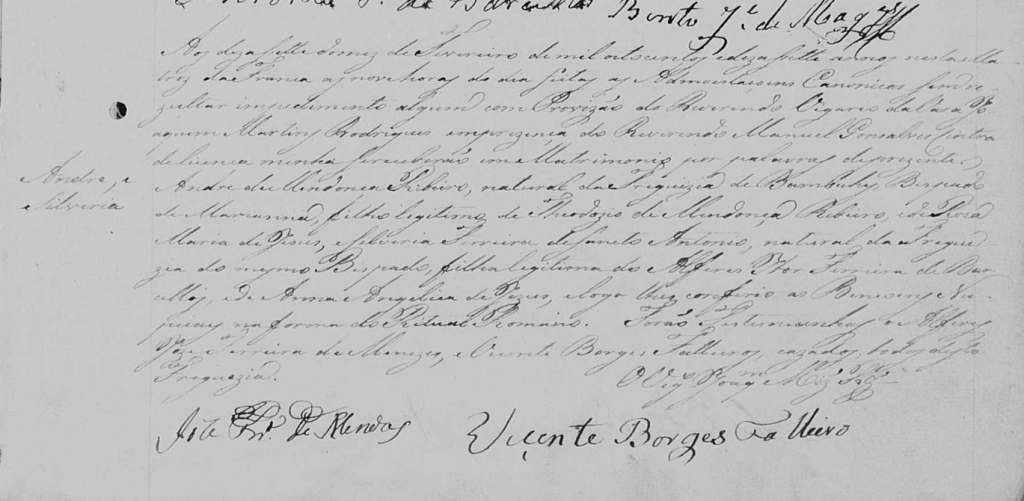 Bento Je. de Mag
Aos dezasette do mez de Fevereiro de mil oito centos e dezasette annos nesta Ma-
triz da Franca as nove horas do dia feitas as Admoestaçoens Canonicas sem re-
zultar impedimento algum com Provizão do Reverendo Vigario da Vara Jo-
aquim Martins Rodrigues em prezença do Reverendo Manuel Gonsalves
de licença minha se receberão em Matrimonio por palavras de prezente
Andre de Mendonca Ribeiro, natural da Freguezia de Bambuhy, Bispado
de Marianna, filho legitimo de Theodozio de Mendonça Ribeiro, e de Roza
Maria de Jesus, e Silveria Ferreira de Santo Antonio, natural da Fregue-
zia do mesmo Bispado, filha legitima do Alferes Ferreira de Bar-
cellos, e de Anna Angelica de Jezus, e logo lhes conferio as Bençoens Nu-
pciaes na forma do Ritual Romano. Forão Testemunhas o Alferes
Joze Ferreira de Menezes, e Vicente Borges Falleiros, cazados, todos desta
Freguezia.
O Vigo. Joaqm. Miz Roiz
Andre, e
Silveria
Joze Fra. De Mendas
Viçente Borges Falleiro